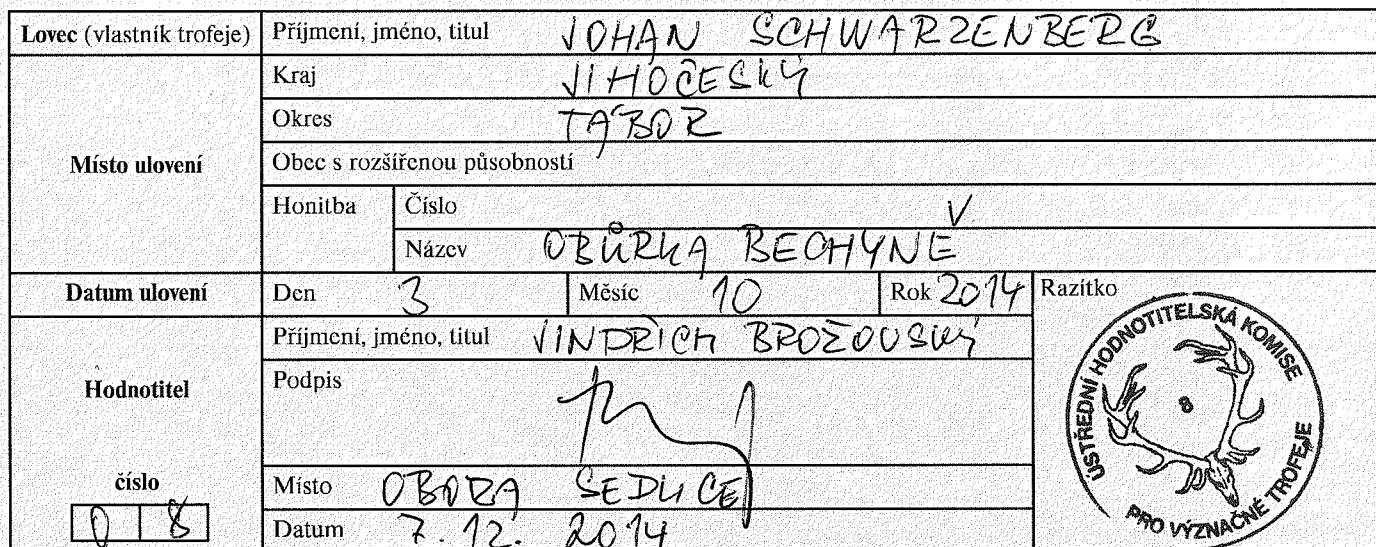 Lovec (vlastník trofeje) Příjmení, jméno, titul JOHAN SCHWARZENBERG
Místo ulovení
Kraj JIHOČESKÝ
Okres TÁBOR
Obec s rozšířenou působností
Honitba Číslo V
Název OBŮRKA BECHYNĚ
Datum ulovení Den 3 Měsíc 10 Rok 2014 Razítko
Hodnotitel
Příjmení, jméno, titul JINDŘICH BROŽOVSKÝ
Podpis
číslo 0 8
Místo OBORA SEDLICE
Datum 7. 12. 2014
ÚSTŘEDNÍ HODNOTITELSKÁ KOMISE
8
PRO VÝZNAČNÉ TROFEJE